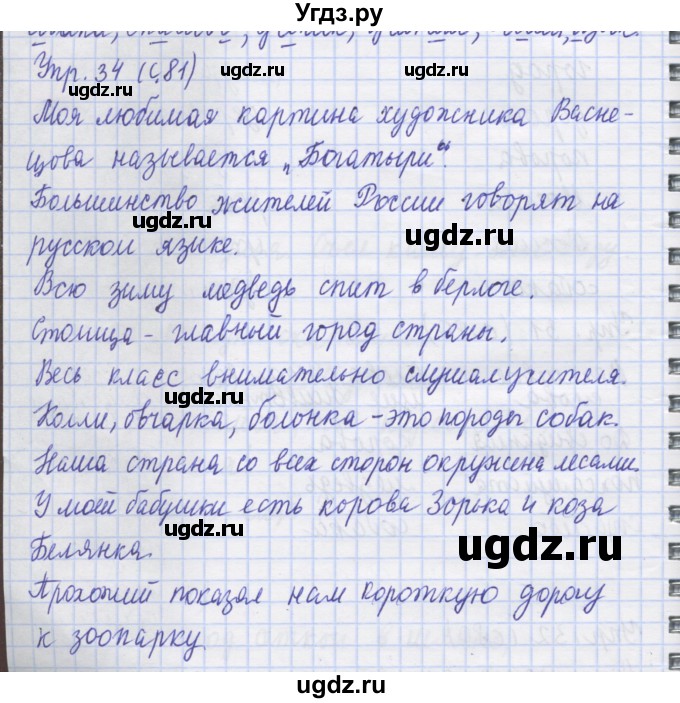 Угдз.ру
Упр. 34 (с. 81)
ugdz.ru ugdz.ru ugdz.ru
Моя любимая картина художника Васне-
цова называется „Богатыри“.
Большинство жителей России говорят на
ugdz.ru ugdz.ru
русском языке.
Всю зиму медведь спит в берлоге.
Столица - главный город страны.
ugdz.ru ugdz.ru
Весь класс внимательно слушал учителя.
ugdz.ru
Колли, овчарка, болонка - это породы собак.
ugdz.ru
Наша страна со всех сторон окружена лесами.
У моей бабушки есть корова Зорька и коза
ugdz.ru ugdz.ru
Белянка.
Прохожий показал нам короткую дорогу
к зоопарку.
ugdz.ru
ugdz.ru